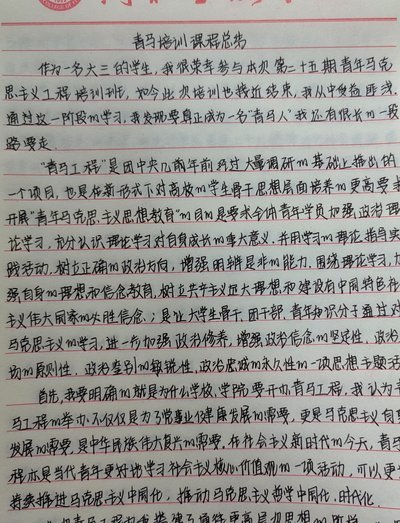 青马培训课程总结
作为一名大三的学生，我很荣幸参与本次第二十五期青年马克
思主义工程培训班，如今此次培训也接近结束，我从中受益匪浅。
通过这一阶段的学习，我发现要真正成为一名"青马人"我还有很长的一段
路要走。
"青马工程"是团中央几年前经过大量调研的基础上推出的
一个项目，也是在新形式下对高校的学生骨干思想层面培养的更高要求
开展"青年马克思主义思想教育"的目的是要求全体青年学员加强政治理
论学习，充分认识理论学习对自身成长的重大意义，并用学习的理论指导实
践活动，树立正确的政治方向，增强明辨是非的能力，围绕理论学习，加
强自身的理想和信念教育，树立共产主义远大理想和建设有中国特色社
主义伟大国家的必胜信念；是让大学生骨干、团干部、青年知识分子通过对
马克思主义的学习，进一步加强政治修养，增强政治信念的坚定性、政治
场的原则性、政治鉴别的敏锐性、政治忠诚的永久性的一项思想主题活
首先，我要明确的就是为什么学校、学院要开办青马工程，我认为青
马工程的举办不仅仅是为了党事业的健康发展的需要，更是马克思主义自身
发展的需要，是中华民族伟大复兴的需要，在社会主义新时代的今天，青马
程亦是当代青年更好地学习社会主义核心价值观的一项活动，可以更
续推进马克思主义中国化，推动马克思主义哲学中国化、时代化。